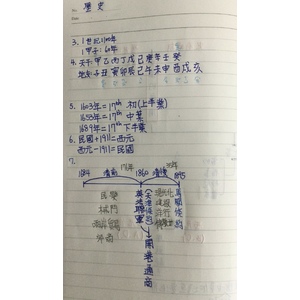 歷史
3. 1世紀=100年
1甲子=60年
4. 天干:甲乙丙丁戊己庚辛壬癸
地支:子丑寅卯辰巳午未申酉戌亥
5. 1603年=17th 初(上半葉)
1655年=17th 中葉
1689年=17th 下半葉
6. 民國+1911=西元
西元-1911=民國
7.
35年
清前
清後
1684
1860
1895
英法聯軍
(天津條約)
馬關條約
開港通商